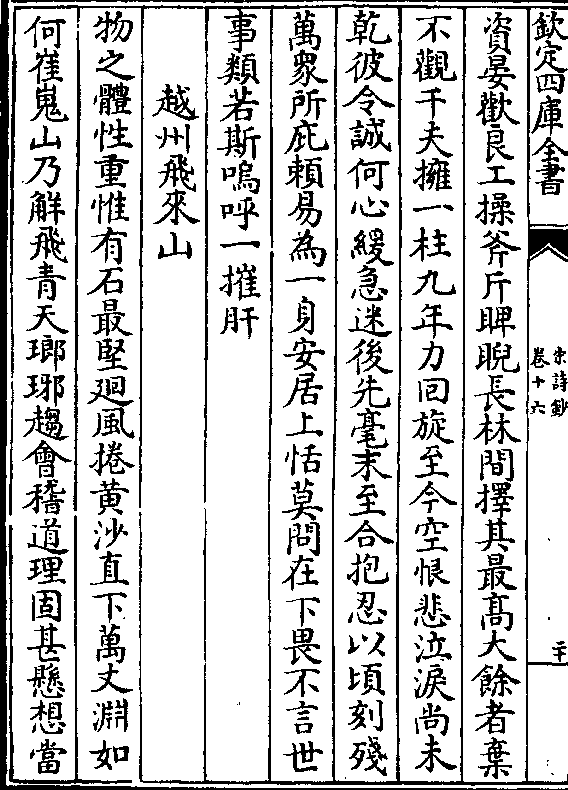 欽定四庫全書
宋詩鈔
卷十六
二十
資宴歡良工操斧斤睥睨長林間擇其最高大餘者棄
不觀千夫擁一柱九年力回旋至今空恨悲泣淚尚未
乾彼令誠何心緩急迷後先毫末至合抱忍以頃刻殘
萬衆所庇賴易為一身安居上恬莫問在下畏不言世
事類若斯嗚呼一摧肝
越州飛來山
物之體性重惟有石最堅廻風捲黃沙直下萬丈淵如
何崔嵬山乃解飛青天瑯琊趨會稽道理固甚懸想當